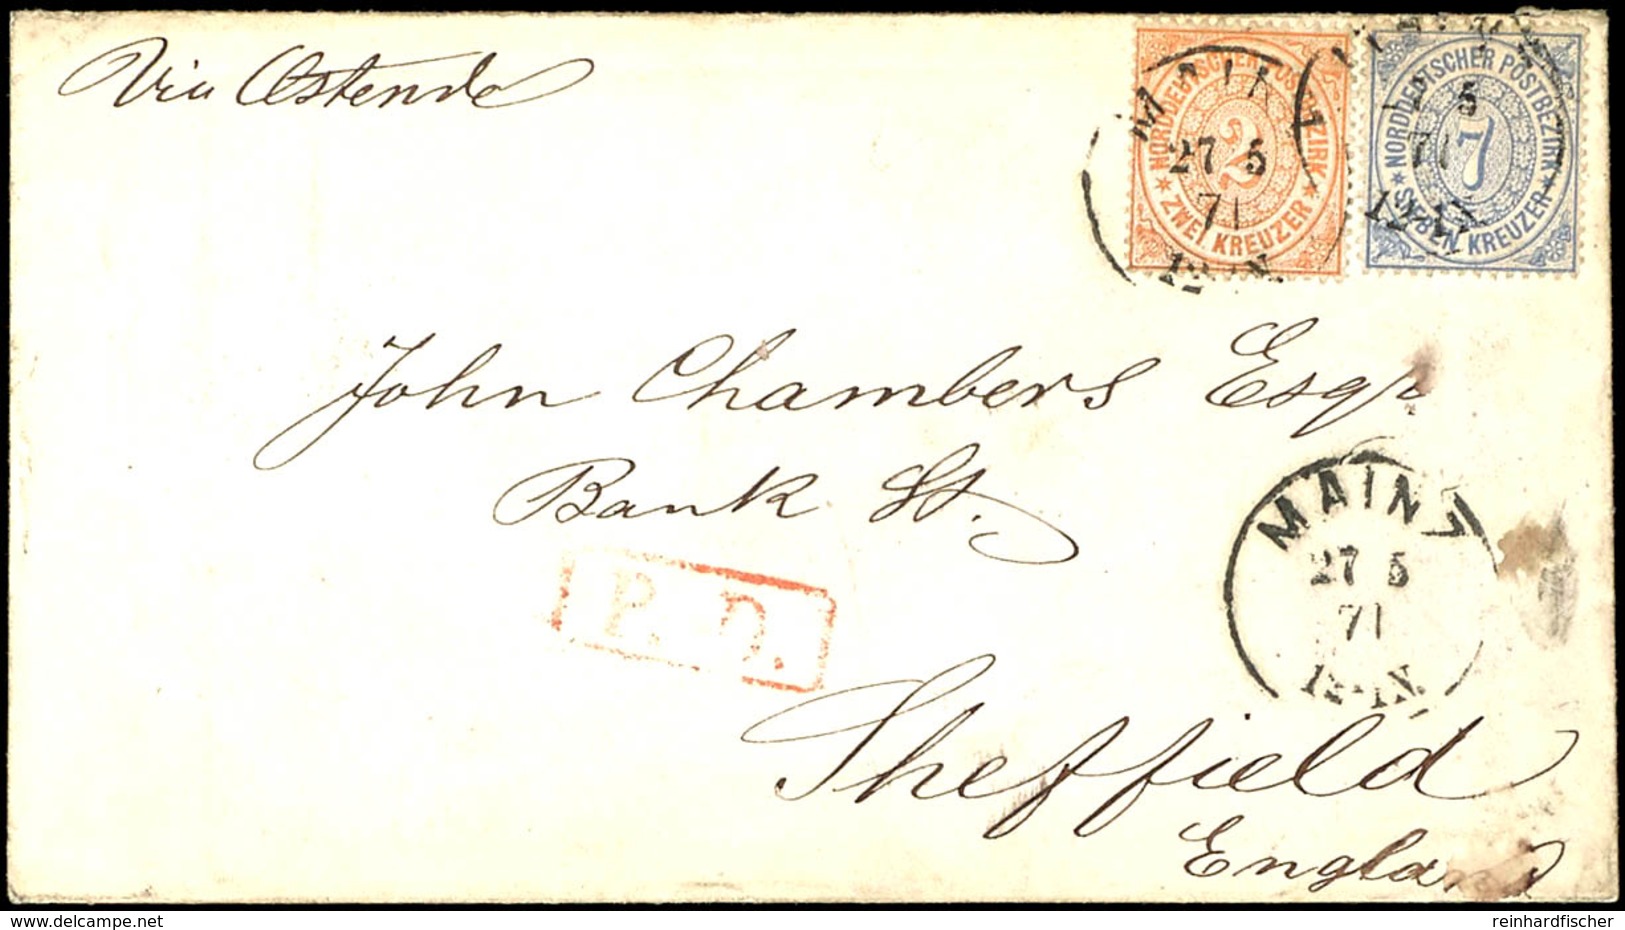 Via Ostende
NORDDEUTSCHER POSTBEZIRK
2
ZWEI KREUZER
NORDDEUTSCHER POSTBEZIRK
7
SIEBEN KREUZER
27 5
71
5
John Chambers Esqr
Bank St.
P. D.
MAINZ
27 5
71
12-1N.
Sheffield
England
www.delcampe.net
reinhardfischer